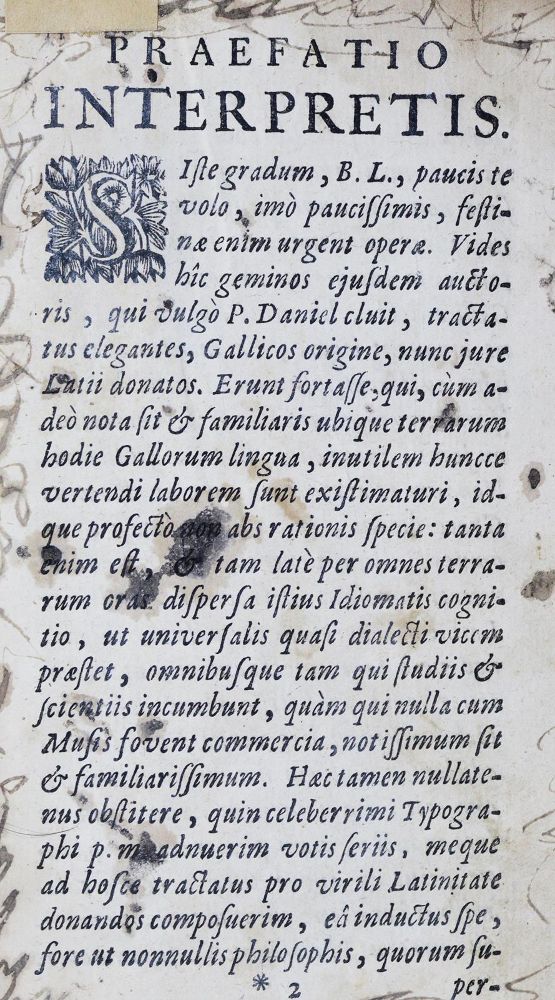 PRAEFATIO
INTERPRETIS.
SIſte gradum, B. L., paucis te
volo, imò pauciſſimis, feſti-
næ enim urgent operæ. Vides
hîc geminos ejuſdem aucto-
ris, qui vulgò P. Daniel cluit, tracta-
tus elegantes, Gallicos origine, nunc jure
Latii donatos. Erunt fortaſſe, qui, cùm a-
deò nota ſit & familiaris ubique terrarum
hodie Gallorum lingua, inutilem huncce
vertendi laborem ſunt exiſtimaturi, id-
que profectò non abs rationis ſpecie: tanta
enim eſt, & tam latè per omnes terra-
rum oras diſperſa iſtius Idiomatis cogni-
tio, ut univerſalis quaſi dialecti vicem
præſtet, omnibuſque tam qui ſtudiis &
ſcientiis incumbunt, quàm qui nulla cum
Muſis fovent commercia, notiſſimum ſit
& familiariſſimum. Hæc tamen nullate-
nus obſtitere, quin celeberrimi Typogra-
phi p. m. adnuerim votis ſeriis, meque
ad hoſce tractatus pro virili Latinitate
donandos compoſuerim, eâ inductus ſpe,
fore ut nonnullis philoſophis, quorum ſu-
* 2 per-